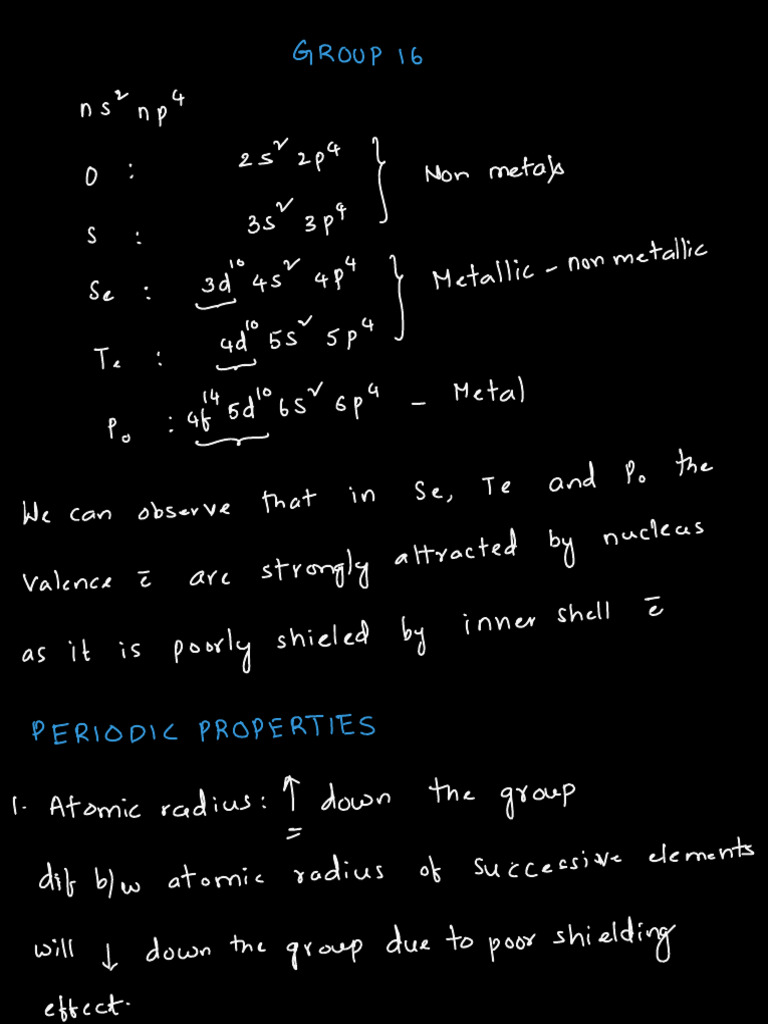 GROUP 16
ns² np⁴
O : 2s² 2p⁴
Non metals
S : 3s² 3p⁴
Se : 3d¹⁰ 4s² 4p⁴
Metallic - non metallic
Te : 4d¹⁰ 5s² 5p⁴
Po : 4f¹⁴ 5d¹⁰ 6s² 6p⁴ - Metal
We can observe that in Se, Te and Po the
valence e̅ are strongly attracted by nucleus
as it is poorly shieled by inner shell e̅
PERIODIC PROPERTIES
1. Atomic radius: ↑ down the group
dif b/w atomic radius of successive elements
will ↓ down the group due to poor shielding
effect.